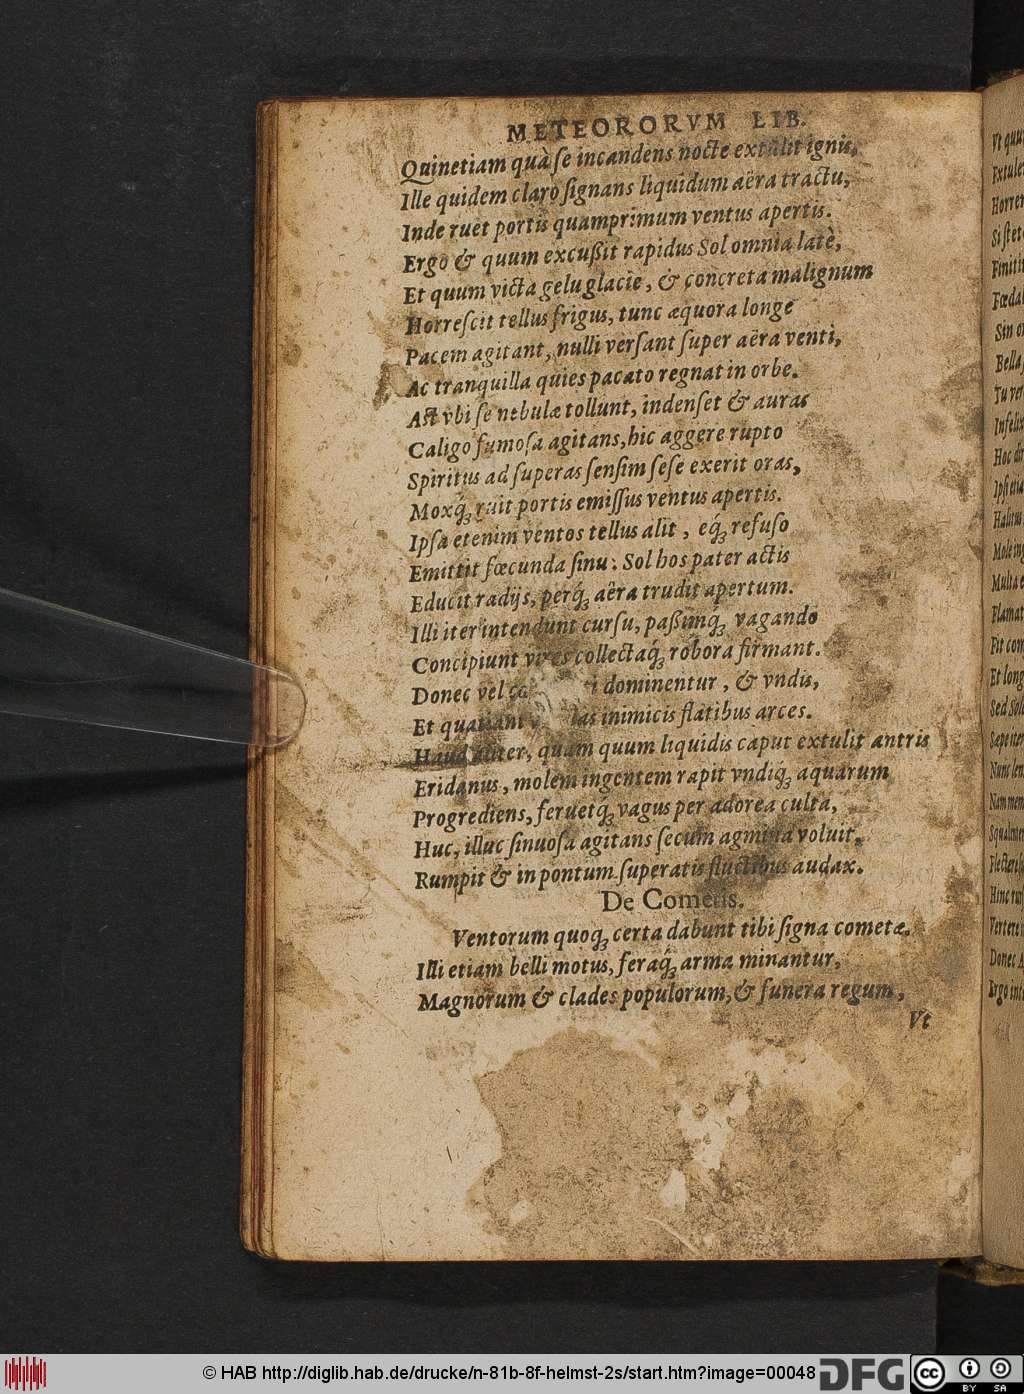 METEORORVM LIB.
Quinetiam quà ſe incandens nocte extulit ignis,
Ille quidem claro ſignans liquidum aëra tractu,
Inde ruet portis quamprimum ventus apertis.
Ergo & quum excußit rapidus Sol omnia latè,
Et quum victa gelu glacie, & concreta malignum
Horreſcit tellus frigus, tunc æquora longe
Pacem agitant, nulli verſant ſuper aëra venti,
Ac tranquilla quies pacato regnat in orbe.
Aſt vbi ſe nebulæ tollunt, indenſet & auras
Caligo fumoſa agitans, hic aggere rupto
Spiritus ad ſuperas ſenſim ſeſe exerit oras,
Moxq́; ruit portis emiſſus ventus apertis.
Ipſa etenim ventos tellus alit, eq́; refuſo
Emittit fœcunda ſinu: Sol hos pater actis
Educit radijs, perq́; aëra trudit apertum.
Illi iter intendunt curſu, paßimq́; vagando
Concipiunt vires collectaq́; robora firmant.
Donec vel dominentur, & vndis,
Et quatiant inimicis flatibus arces.
Haud aliter, quam quum liquidis caput extulit antris
Eridanus, molem ingentem rapit vndiq́; aquarum
Progrediens, feruetq́; vagus per adorea culta,
Huc, illuc ſinuoſa agitans ſecum agmina voluit,
Rumpit & in pontum ſuperatis fluctibus audax.
De Cometis.
Ventorum quoq́; certa dabunt tibi ſigna cometæ.
Illi etiam belli motus, feraq́; arma minantur,
Magnorum & clades populorum, & funera regum,
Vt
© HAB http://diglib.hab.de/drucke/n-81b-8f-helmst-2s/start.htm?image=00048
DFG
cc
BY SA